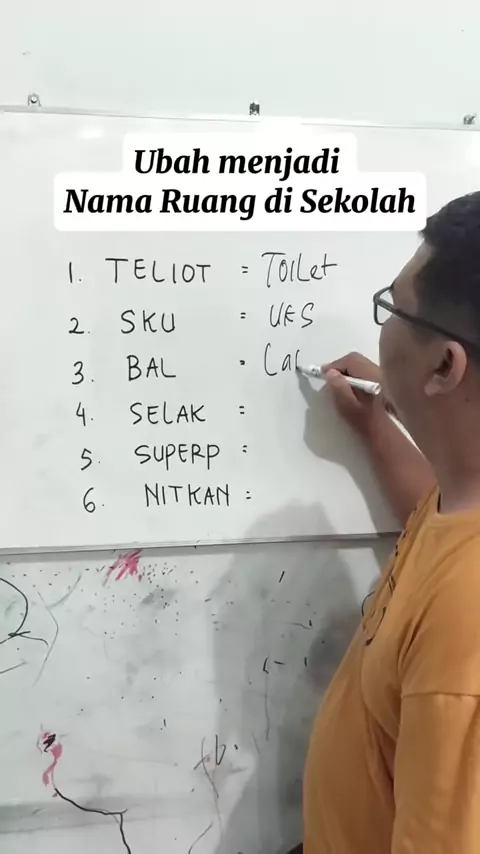 Ubah menjadi
Nama Ruang di Sekolah
1. TELIOT = Toilet
2. SKU = UKS
3. BAL = La
4. SELAK =
5. SUPERP =
6. NITKAN =